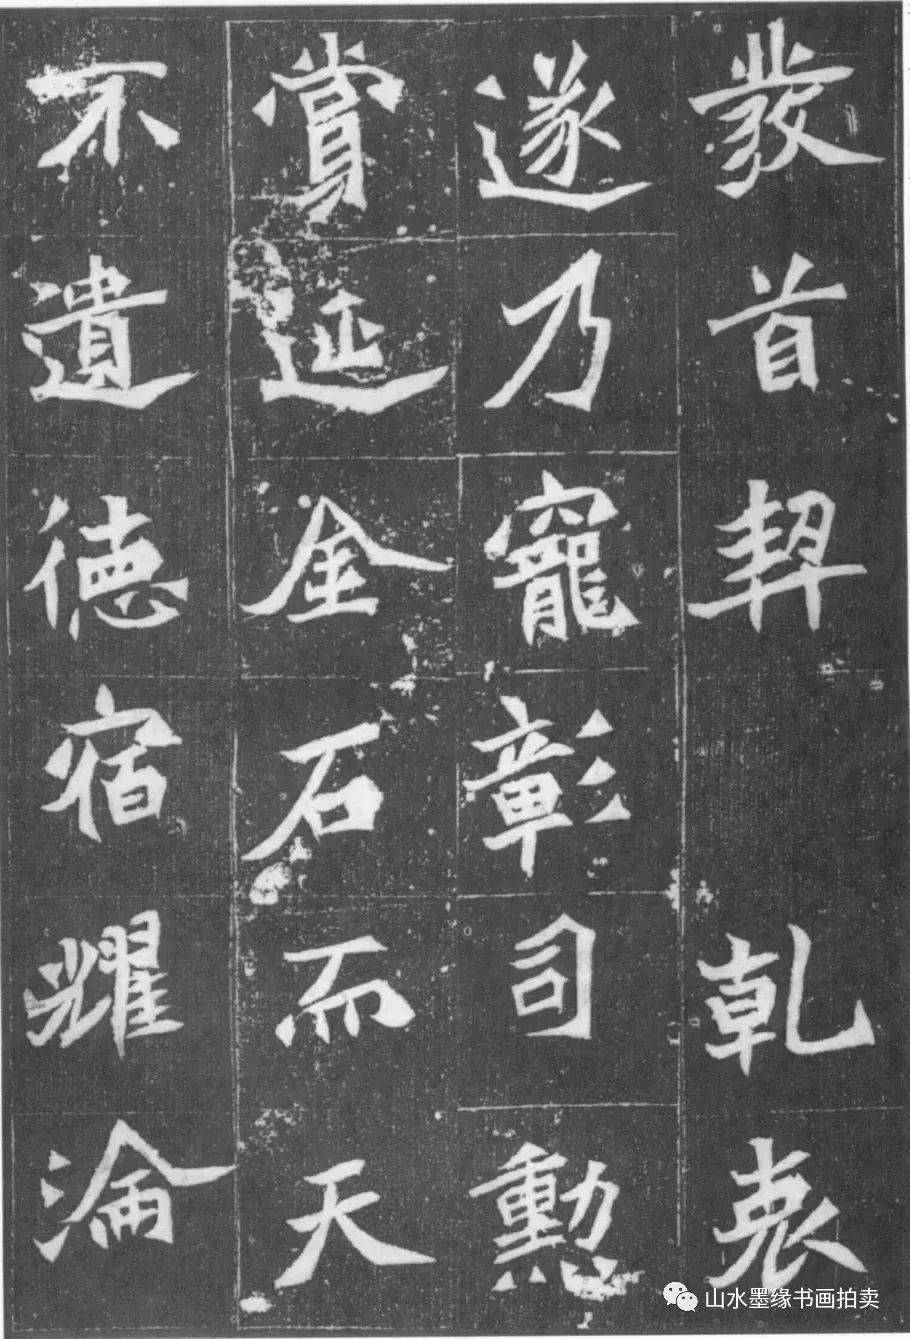 發首契 乾衷
遂乃寵彰司勳
賞延金石而天
不遺德宿耀淪
山水墨缘书画拍卖